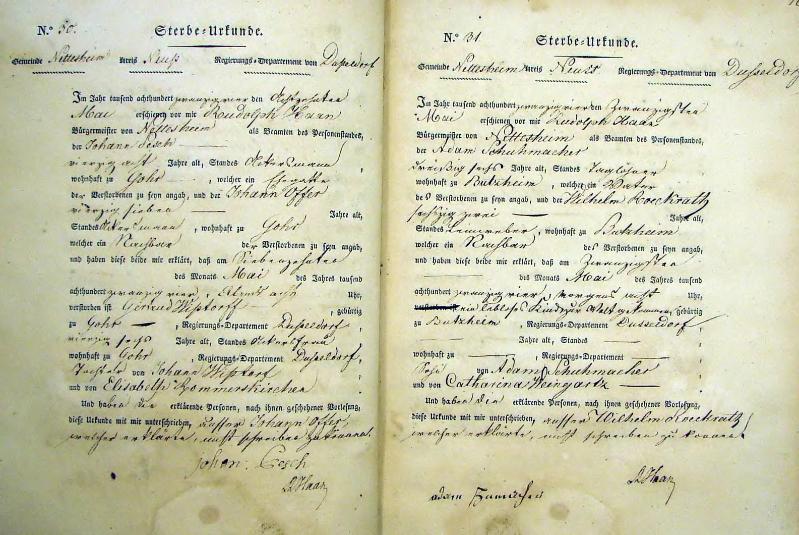 N.º 30.
Sterbe-Urkunde.
Gemeinde Nettesheim Kreis Neuss Regierungs-Departement von Dusseldorf
Im Jahr tausend achthundert zwanzig vier den Achtzehnten
Mai erschien vor mir Rudolph Haan
Bürgermeister von Nettesheim als Beamten des Personenstandes,
der Johann Esch
vierzig acht Jahre alt, Standes Ackersmann
wohnhaft zu Gohr, welcher ein Ehegatte
der Verstorbenen zu seyn angab, und der Johann Offer
vierzig sieben Jahre alt,
Standes Ackersmann, wohnhaft zu Gohr
welcher ein Nachbar der Verstorbenen zu seyn angab,
und haben diese beide mir erklärt, daß am Siebenzehnten
des Monats Mai des Jahres tausend
achthundert zwanzig vier, Abends acht Uhr,
verstorben ist Gertrud Wißdorf, gebürtig
zu Gohr, Regierungs-Departement Dusseldorf
vierzig sechs Jahre alt, Standes Ackersfrau
wohnhaft zu Gohr, Regierungs-Departement Dusseldorf,
Tochter von Johann Wißdorf
und von Elisabeth Bommerskirchen
Und haben die erklärende Personen, nach ihnen geschehener Vorlesung,
diese Urkunde mit mir unterschrieben, ausser Johann Offer,
welcher erklärte, nicht schreiben zu können.
Johan Esch
R Haan
N.º 31
Sterbe-Urkunde.
Gemeinde Nettesheim Kreis Neuss Regierungs-Departement von Dusseldorf
Im Jahr tausend achthundert zwanzig vier den Zwanzigsten
Mai erschien vor mir Rudolph Haan
Bürgermeister von Nettesheim als Beamten des Personenstandes,
der Adam Schuhmacher
dreißig sechs Jahre alt, Standes Taglöhner
wohnhaft zu Butzheim, welcher ein Vater
des Verstorbenen zu seyn angab, und der Wilhelm Roeckrath
sechszig zwei Jahre alt,
Standes Leinweber, wohnhaft zu Butzheim
welcher ein Nachbar des Verstorbenen zu seyn angab,
und haben diese beide mir erklärt, daß am Zwanzigsten
des Monats Mai des Jahres tausend
achthundert zwanzig vier, Morgens acht Uhr,
verstorben ist ein lebloses Kind zur Welt gekommen, gebürtig
zu Butzheim, Regierungs-Departement Dusseldorf,
Jahre alt, Standes
wohnhaft zu, Regierungs-Departement
Sohn von Adam Schuhmacher
und von Catharina Weingartz
Und haben die erklärende Personen, nach ihnen geschehener Vorlesung,
diese Urkunde mit mir unterschrieben, ausser Wilhelm Roeckrath
welcher erklärte, nicht schreiben zu können
R Haan
adam